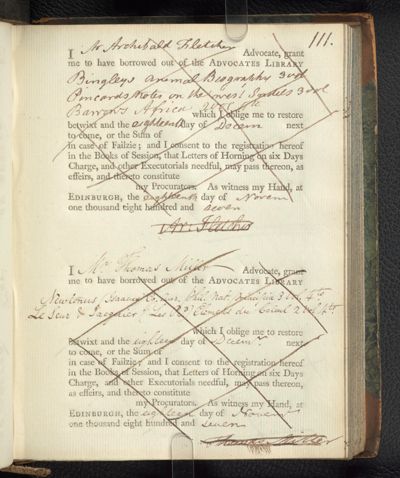 111.
I Mr Archibald Fletcher Advocate, grant
me to have borrowed out of the ADVOCATES LIBRARY
Bingley's Animal Biography 3 vol
Notes on the West Indies 3 vol
Barrow's Africa 2 vol
which I oblige me to restore
betwixt and the eighteenth day of Decem next
to come, or the Sum of
in case of Failzie; and I consent to the registration hereof
in the Books of Session, that Letters of Horning on six Days
Charge, and other Executorials needful, may pass thereon, as
effeirs, and thereto constitute
my Procurators. As witness my Hand, at
EDINBURGH, the eighteenth day of Novem
one thousand eight hundred and seven
Ar. Fletcher
I Mr Thomas Miller Advocate, grant
me to have borrowed out of the ADVOCATES LIBRARY
Newtonus, Phil. Nat. Principia 3 vol. 4to
Le Seur & Jacquier
which I oblige me to restore
betwixt and the day of Decemr next
to come, or the Sum of
in case of Failzie; and I consent to the registration hereof
in the Books of Session, that Letters of Horning on six Days
Charge, and other Executorials needful, may pass thereon,
as effeirs, and thereto constitute
my Procurators. As witness my Hand, at
EDINBURGH, the day of Novemr
one thousand eight hundred and seven
Thomas Miller